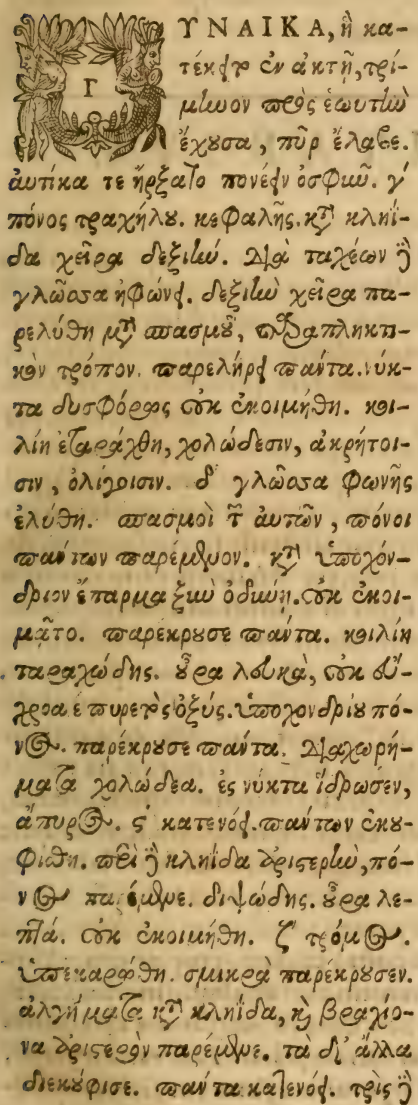 ΓΥΝΑΙΚΑ, ἣ κα-
τέκειτο ἐν ἀκτῇ, τρί-
μηνον πρὸς ἑωυτὴν
ἔχουσα, πῦρ ἔλαβε.
αὐτίκα τε ἤρξατο πονέειν ὀσφύν. γ΄
πόνος τραχήλου. κεφαλῆς. κατὰ κληῖ-
δα χεῖρα δεξιήν. διὰ ταχέων δὲ
γλῶσσα ἠφώνει. δεξιὴ χεὶρ πα-
ρελύθη μετὰ σπασμοῦ, παραπληκτι-
κὸν τρόπον. παρελήρει πάντα. νύκ-
τα δυσφόρως οὐκ ἐκοιμήθη. κοι-
λίη ἐταράχθη, χολώδεσιν, ἀκρήτοι-
σιν, ὀλίγοισιν. δ΄ γλῶσσα φωνῆς
ἐλύθη. σπασμοὶ τῶν αὐτῶν, πόνοι
πάντων παρέμενον. κατὰ ὑποχόν-
δριον ἔπαρμα ξὺν ὀδύνῃ. οὐκ ἐκοι-
μᾶτο. παρέκρουσε πάντα. κοιλίη
ταραχώδης. οὖρα λευκὰ, οὐκ εὔ-
χροα. ε΄ πυρετὸς ὀξύς. ὑποχονδρίου πό-
νος. παρέκρουσε πάντα. διαχωρή-
ματα χολώδεα. ἐς νύκτα ἵδρωσεν,
ἄπυρος. ϛ΄ κατενόει. πάντων ἐκου-
φίσθη. περὶ δὲ κληῖδα ἀριστερὴν, πό-
νος παρέμενε. διψώδης. οὖρα λε-
πτά. οὐκ ἐκοιμήθη. ζ΄ τρόμος.
ὑπεκαρώθη. σμικρὰ παρέκρουσεν.
ἀλγήματα κατὰ κληῖδα, καὶ βραχίο-
να ἀριστερὸν παρέμενε. τὰ δ᾽ ἄλλα
διεκούφισε. πάντα κατενόει. τρὶς δὲ